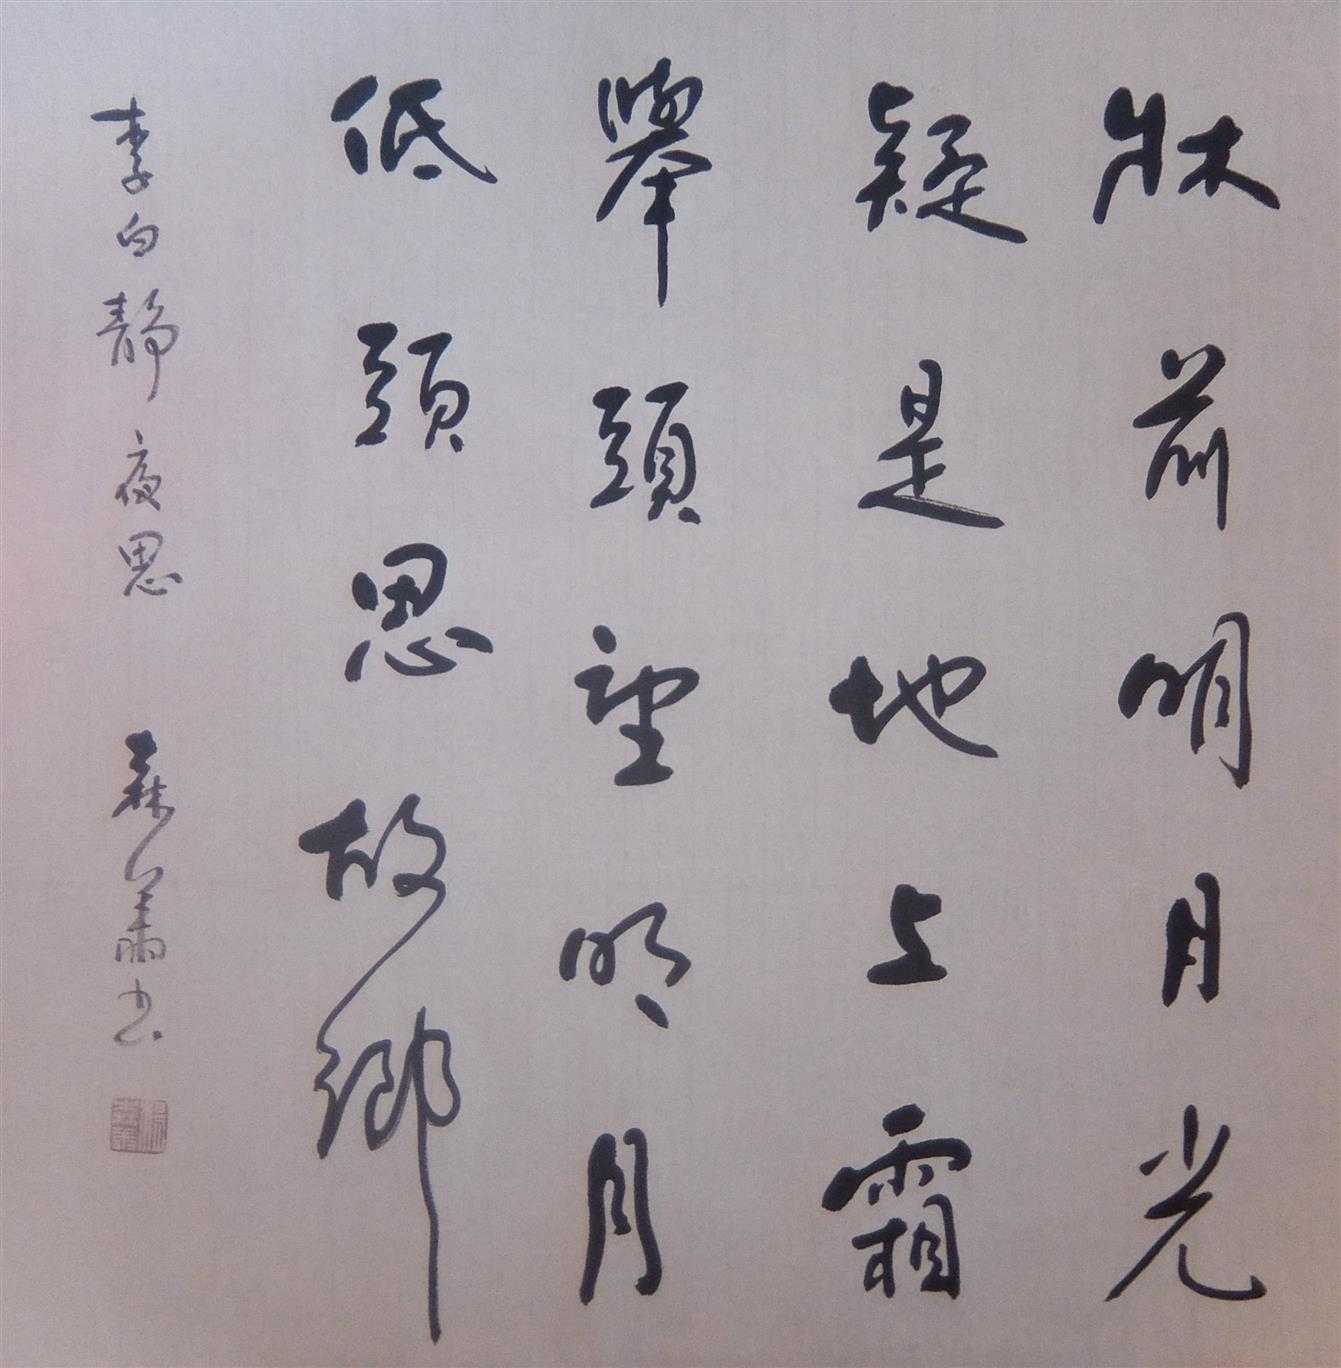 牀前明月光
疑是地上霜
舉頭望明月
低頭思故鄉
李白靜夜思 森蕭書